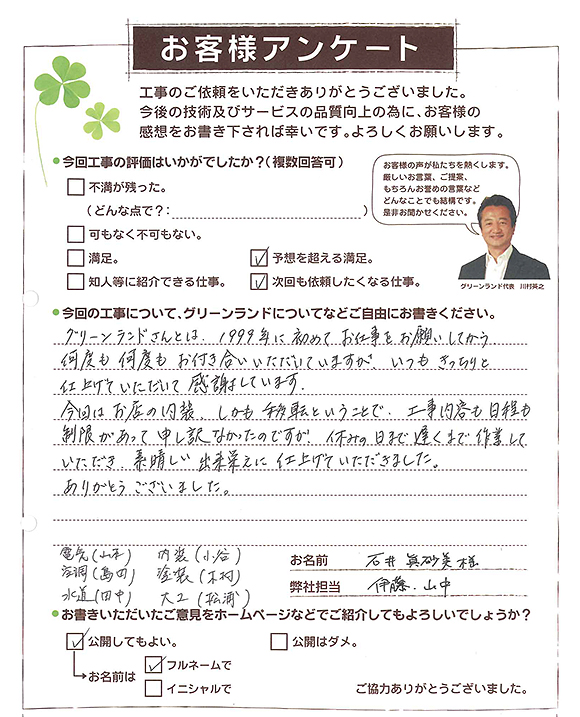 お客様アンケート
工事のご依頼をいただきありがとうございました。
今後の技術及びサービスの品質向上の為に、お客様の
感想をお書き下されば幸いです。よろしくお願いします。
今回工事の評価はいかがでしたか?(複数回答可)
不満が残った。
(どんな点で?: )
可もなく不可もない。
満足。
予想を超える満足。
知人等に紹介できる仕事。
次回も依頼したくなる仕事。
お客様の声が私たちを熱くします。
厳しいお言葉、ご提案、
もちろんお誉めの言葉など
どんなことでも結構です。
是非お聞かせください。
グリーンランド代表 川村英之
今回の工事について、グリーンランドについてなどご自由にお書きください。
グリーンランドさんとは、1999年に初めてお仕事をお願いしてから
何度も何度もお付き合いいただいていますが、いつもきっちりと
仕上げていただいて感謝しています。
今回はお店の内装、しかも移転ということで、工事内容も日程も
制限があって申し訳なかったのですが、休みの日まで遅くまで作業して
いただき、素晴しい出来栄えに仕上げていただきました。
ありがとうございました。
電気(山本) 内装(小谷)
空調(島田) 塗装(木村)
水道(田中) 大工(松浦)
お名前 石井 眞砂美 様
弊社担当 伊藤・山中
お書きいただいたご意見をホームページなどでご紹介してもよろしいでしょうか?
公開してもよい。
公開はダメ。
お名前は
フルネームで
イニシャルで
ご協力ありがとうございました。